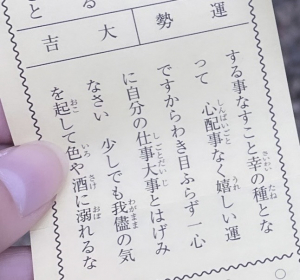 運勢
大吉
する事なすこと幸の種とな
って　心配事なく嬉しい運
ですからわき目ふらず一心
に自分の仕事大事とはげみ
なさい　少しでも我儘の気
を起して色や酒に溺れるな